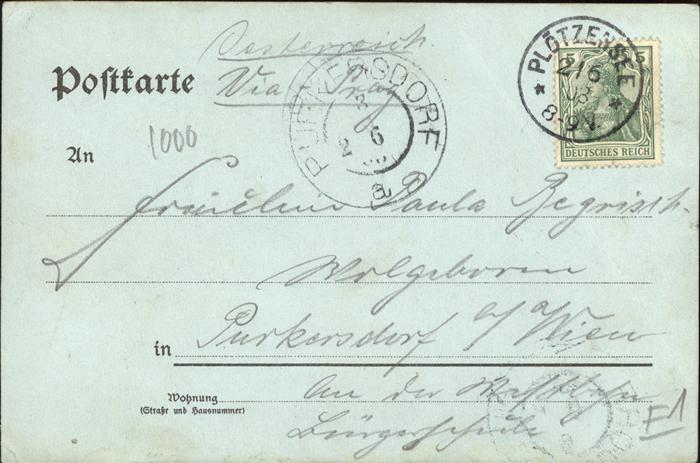 Oesterreich
Postkarte
Via Prag
PLÖTZENSEE
2/6
03
8-9V.
5 5
DEUTSCHES REICH
PURKERSDORF
6
1000
An
Fräulein Paula Begrisch
Wolgeboren
in Purkersdorf b/ Wien
An der Westbahn
Wohnung
(Straße und Hausnummer)
Bürgerschule
F1